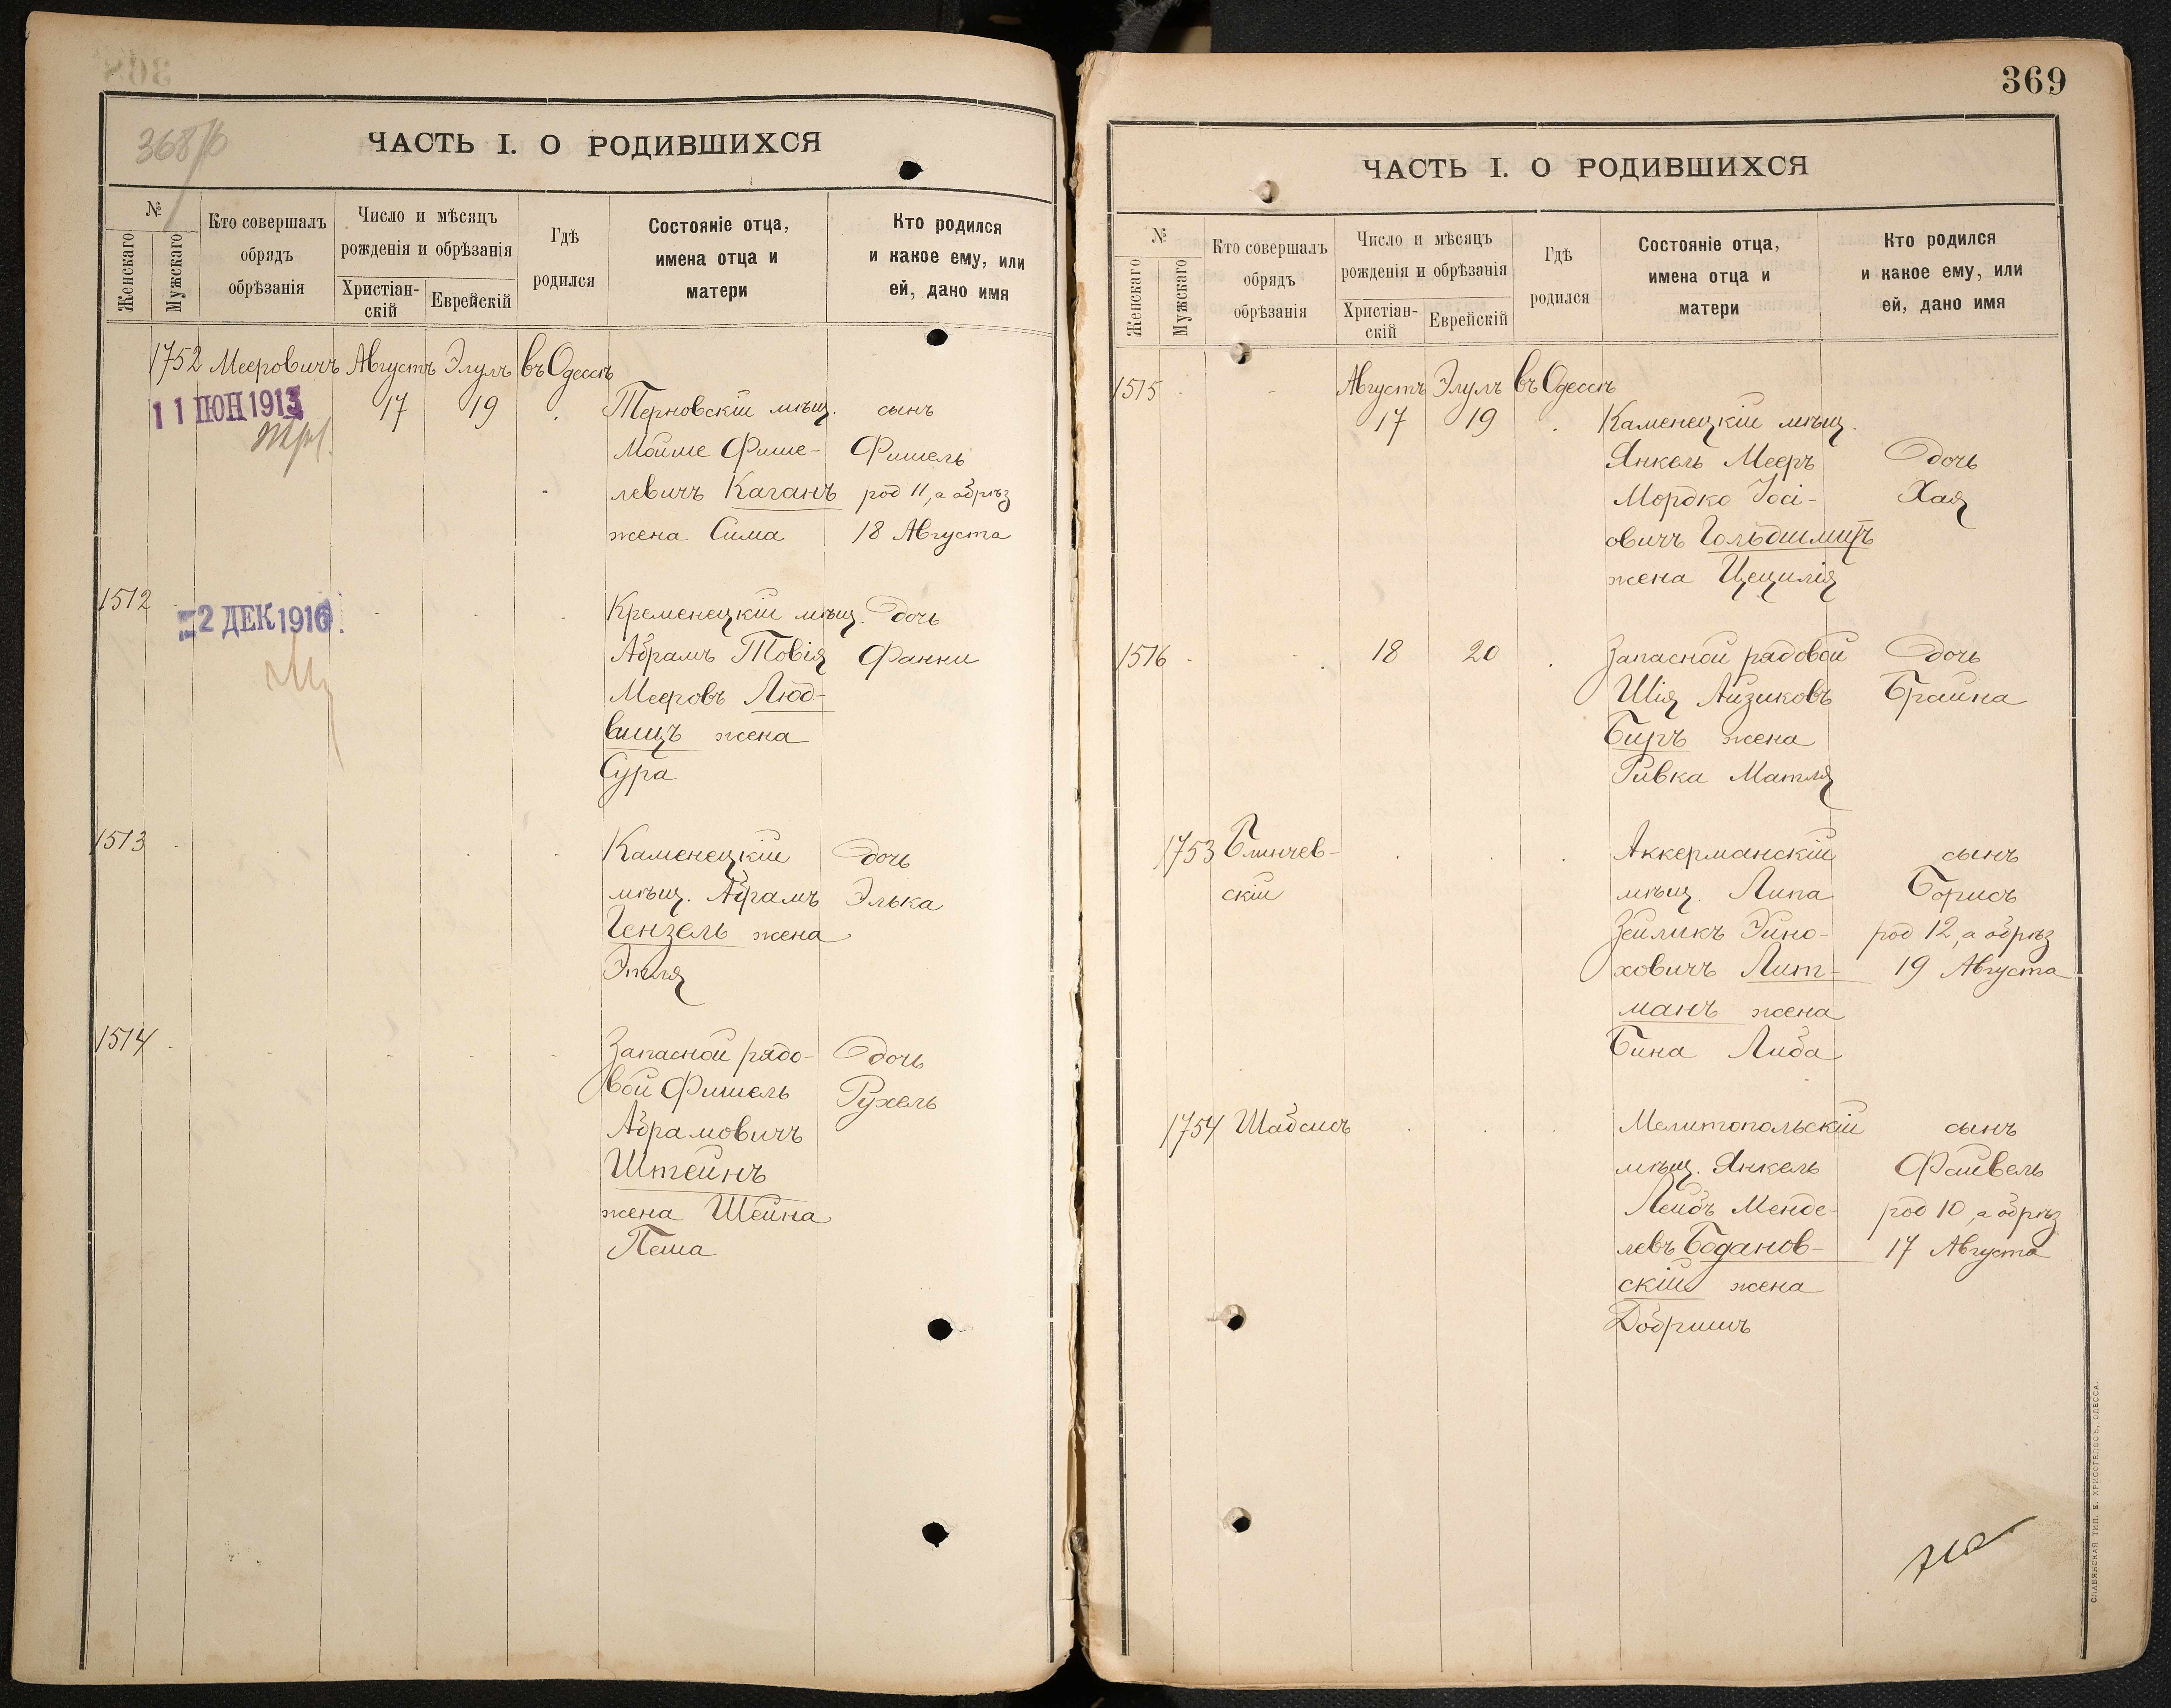 368
368/б
ЧАСТЬ I. О РОДИВШИХСЯ
№
Женскаго
Мужскаго
Кто совершалъ
обрядъ
обрѣзанія
Число и мѣсяцъ
рожденія и обрѣзанія
Христіан-
скій
Еврейскій
Гдѣ
родился
Состояніе отца,
имена отца и
матери
Кто родился
и какое ему, или
ей, дано имя
1752 Мееровичъ Августъ Элулъ въ Одессѣ
11 ІЮН 1913 17 19 Терновскій мѣщ. сынъ
Мойше Фише- Фишель
левичъ Каганъ род 11, а обрѣз
жена Сима 18 Августа
1512
=2 ДЕК 1916
Кременецкій мѣщ. дочь
Абрамъ Товія Фанни
Мееровъ Люд-
вищъ жена
Сура
1513 Каменецкій дочь
мѣщ. Абрамъ Элька
Гензель жена
Этля
1514 Запасной рядо- дочь
вой Фишель Рухель
Абрамовичъ
Штейнъ
жена Шейна
Песа
369
ЧАСТЬ I. О РОДИВШИХСЯ
№
Женскаго
Мужскаго
Кто совершалъ
обрядъ
обрѣзанія
Число и мѣсяцъ
рожденія и обрѣзанія
Христіан-
скій
Еврейскій
Гдѣ
родился
Состояніе отца,
имена отца и
матери
Кто родился
и какое ему, или
ей, дано имя
1515 Августъ Элулъ въ Одессѣ
17 19 Каменецкій мѣщ.
Янкель Мееръ дочь
Мордко Іосі- Хая
овичъ Гольдшмитъ
жена Цецилія
1516 18 20 Запасной рядовой дочь
Шія Айзиковъ Брайна
Биръ жена
Ривка Матля
1753 Блинчев- Аккерманскій сынъ
скій мѣщ. Липа Борисъ
Зейликъ Эйно- род 12, а обрѣз
ховичъ Лит- 19 Августа
манъ жена
Бина Либа
1754 Шабсисъ Мелитопольскій сынъ
мѣщ. Янкель Файвель
Лейбъ Менде- род 10, а обрѣз
левъ Боданов- 17 Августа
скій жена
Добришъ
СЛАВЯНСКАЯ ТИП. Е. ХРИСОГЕЛОСЪ, ОДЕССА.